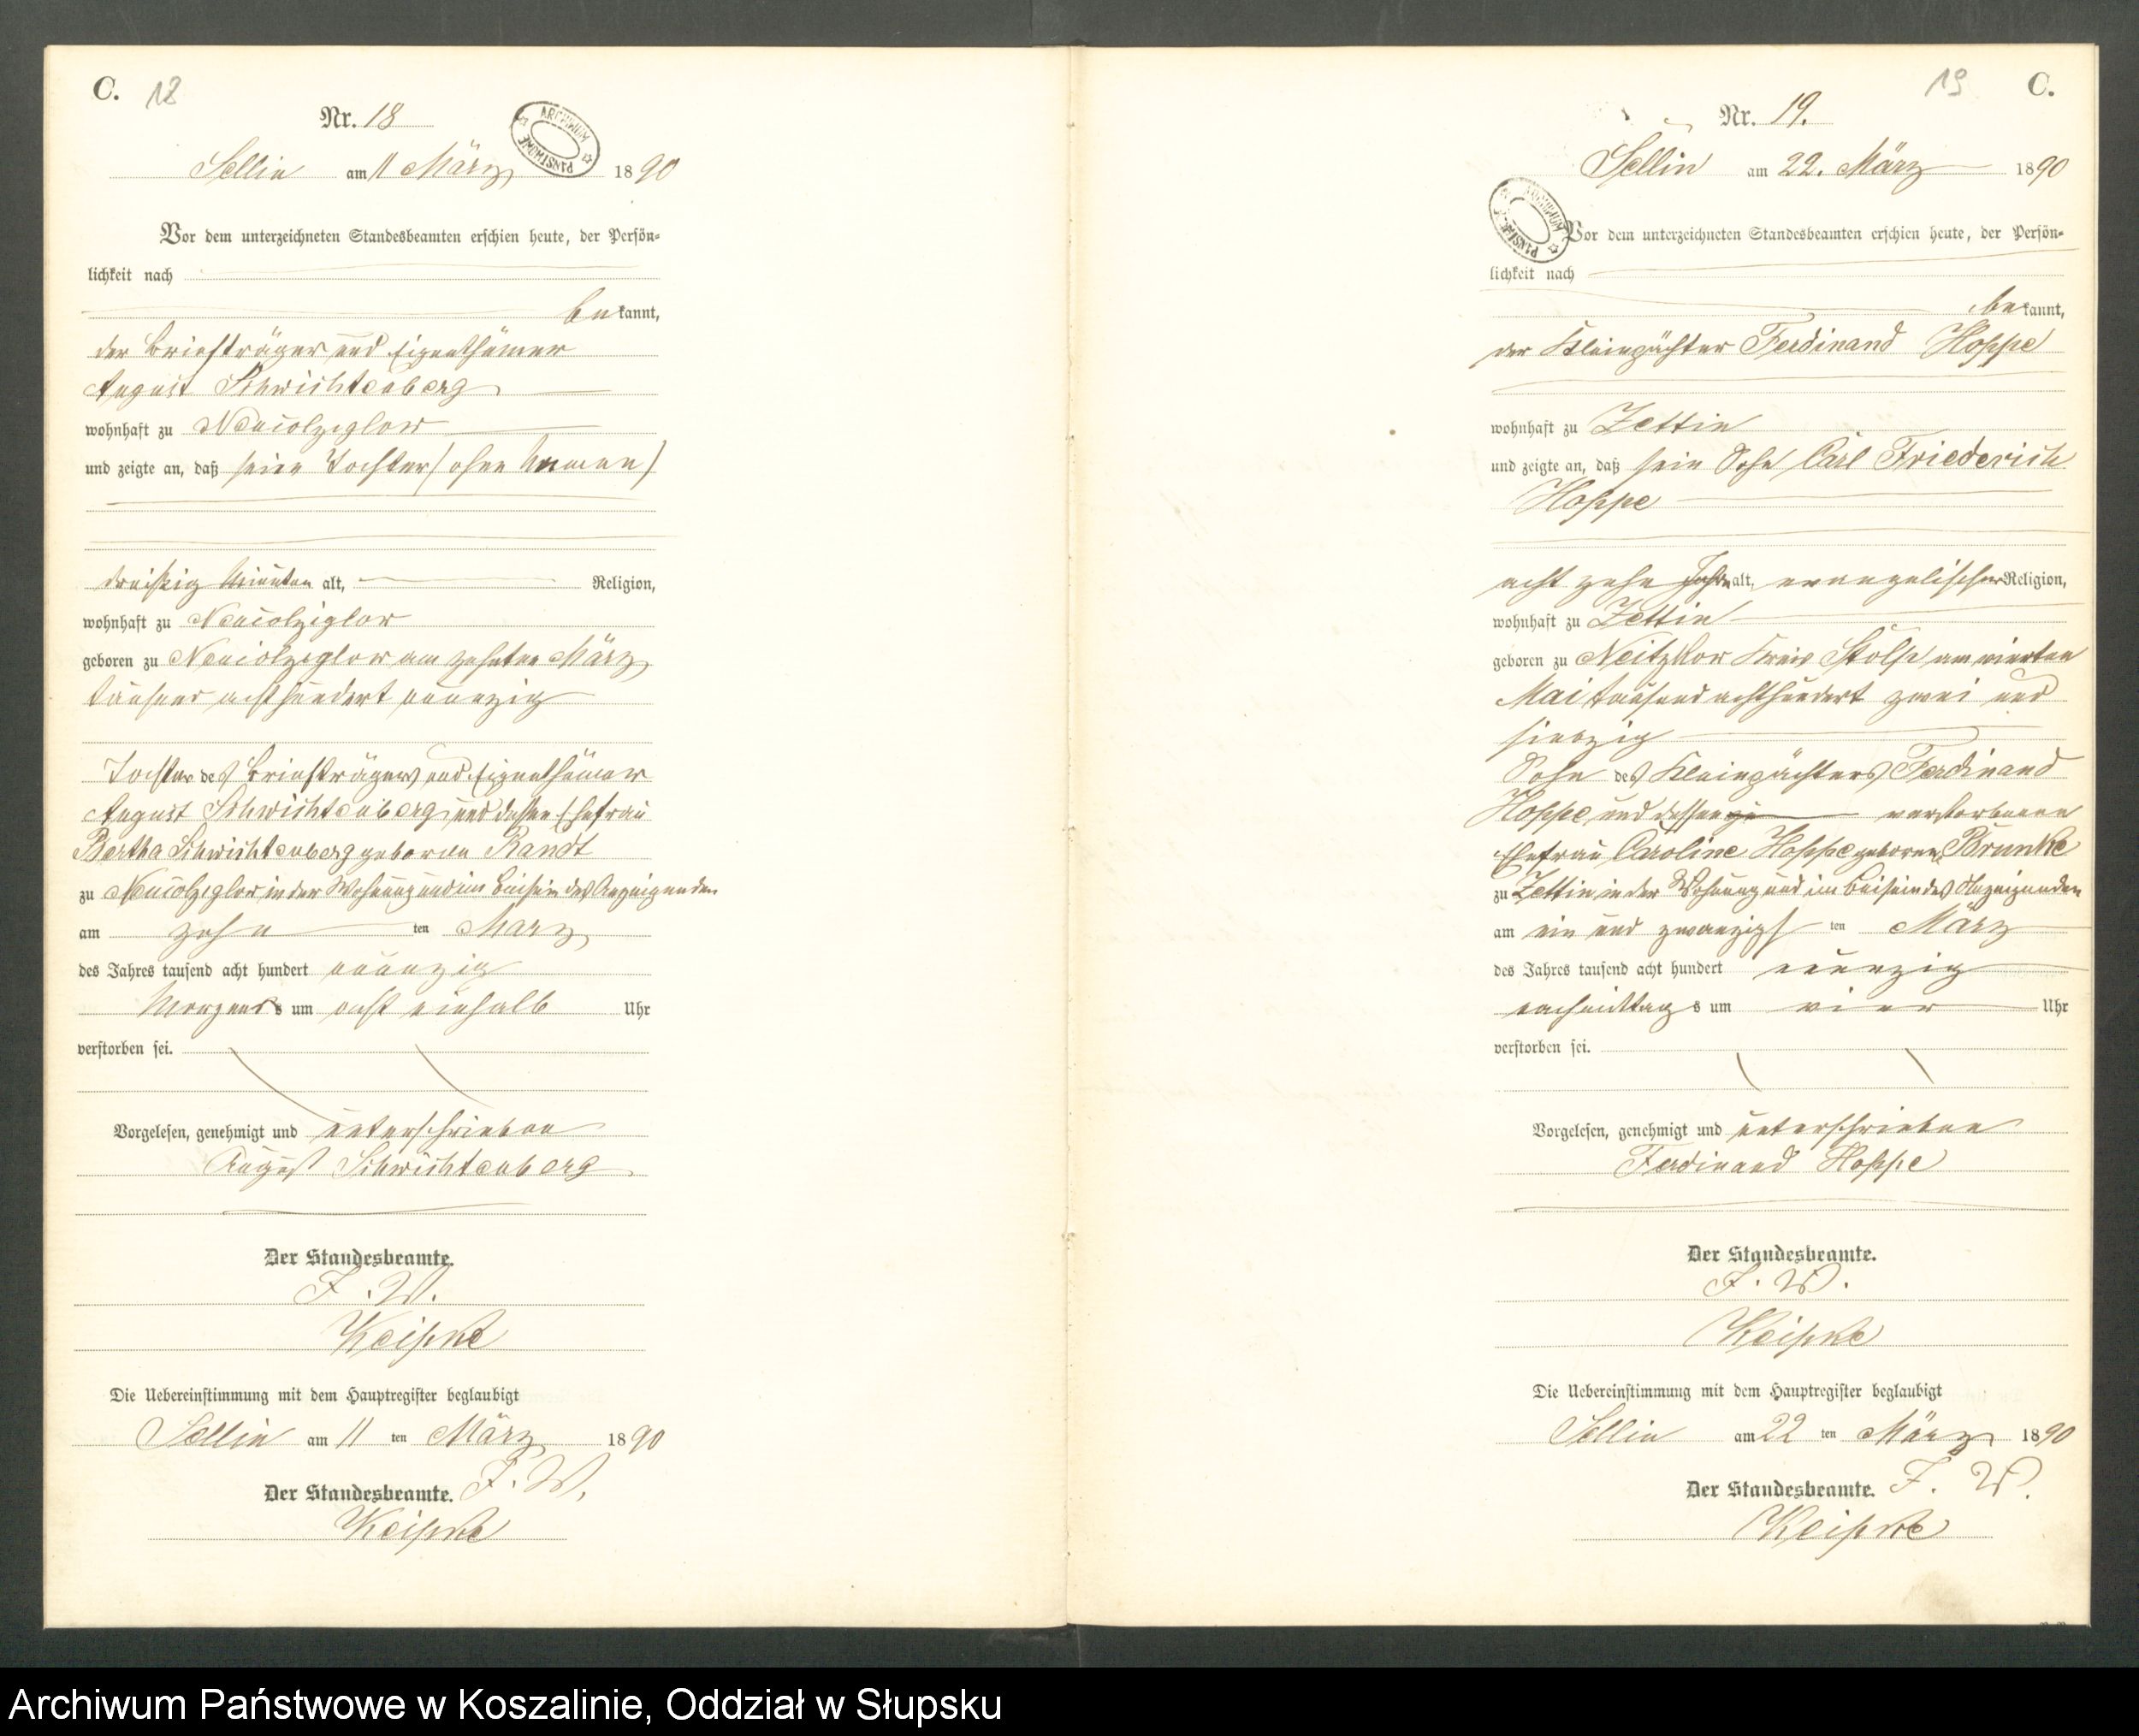 C. 18
Nr. 18
ARCHIWUM PAŃSTWOWE
Sellin am 11 März 1890
Vor dem unterzeichneten Standesbeamten erschien heute, der Persön-
lichkeit nach
bekannt,
der Briefträger und Eigenthümer
August Schwichtenberg
wohnhaft zu Neucolziglow
und zeigte an, daß seine Tochter (ohne Namen)
dreißig Minuten alt, Religion,
wohnhaft zu Neucolziglow
geboren zu Neucolziglow am zehnten März
tausend achthundert neunzig
Tochter des Briefträgers und Eigenthümer
August Schwichtenberg und dessen Ehefrau
Bertha Schwichtenberg geborene Randt
zu Neucolziglow in der Wohnung und im Beisein des Anzeigenden
am zehn ten März
des Jahres tausend acht hundert neunzig
Morgens um acht einhalb Uhr
verstorben sei.
Vorgelesen, genehmigt und unterschrieben
August Schwichtenberg
Der Standesbeamte.
I. V.
Die Uebereinstimmung mit dem Hauptregister beglaubigt
Sellin am 11 ten März 1890
Der Standesbeamte. I. V.
19 C.
Nr. 19.
Sellin am 22. März 1890
ARCHIWUM PAŃSTWOWE
Vor dem unterzeichneten Standesbeamten erschien heute, der Persön-
lichkeit nach
bekannt,
der Kleinpächter Ferdinand Hoppe
wohnhaft zu Zettin
und zeigte an, daß sein Sohn Carl Friederich
Hoppe
acht zehn Jahre alt, evangelischer Religion,
wohnhaft zu Zettin
geboren zu Neitzkow Kreis Stolp am vierten
Mai tausend achthundert zwei und
siebzig
Sohn des Kleinpächters Ferdinand
Hoppe und dessen verstorbenen
Ehefrau Caroline Hoppe geborene Brunke
zu Zettin in der Wohnung und im Beisein des Anzeigenden
am ein und zwanzigs ten März
des Jahres tausend acht hundert neunzig
nachmittags um vier Uhr
verstorben sei.
Vorgelesen, genehmigt und unterschrieben
Ferdinand Hoppe
Der Standesbeamte.
I. V.
Die Uebereinstimmung mit dem Hauptregister beglaubigt
Sellin am 22 ten März 1890
Der Standesbeamte. I. V.
Archiwum Państwowe w Koszalinie, Oddział w Słupsku